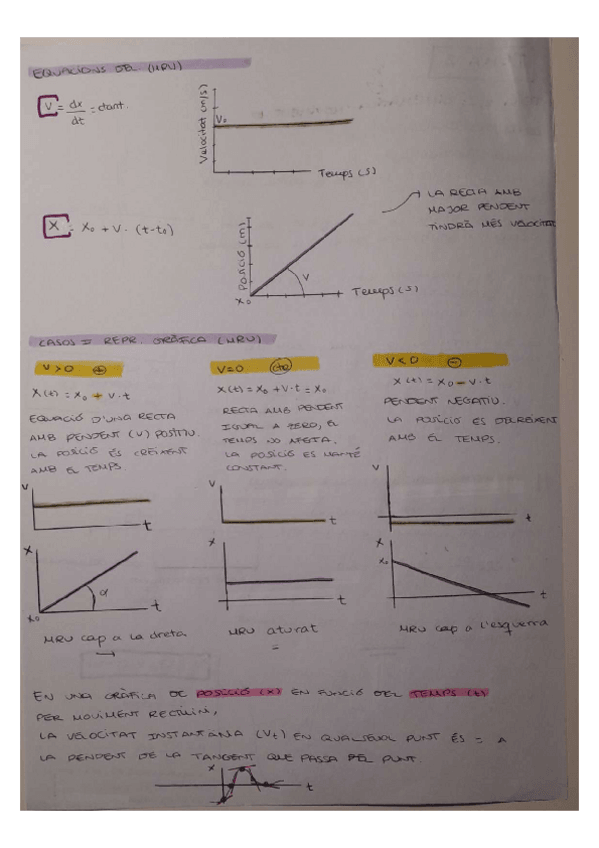 EQUACIONS DEL (MRU)
V = dx/dt = ctant.
Velocitat (m/s)
V₀
Temps (s)
X = X₀ + V · (t-t₀)
Posició (m)
X₀
V
Temps (s)
→ LA RECTA AMB
MAJOR PENDENT
TINDRÀ MÉS VELOCITAT
CASOS = REPR. GRÀFICA (MRU)
V>0 +
X(t) = X₀ + V·t
EQUACIÓ D'UNA RECTA
AMB PENDENT (V) POSITIU.
LA POSICIÓ ÉS CREIXENT
AMB EL TEMPS.
V=0 cte
X(t) = X₀ + V·t = X₀
RECTA AMB PENDENT
IGUAL A ZERO, EL
TEMPS NO AFECTA.
LA POSICIÓ ES MANTÉ
CONSTANT.
V<0 −
X(t) = X₀ − V·t
PENDENT NEGATIU.
LA POSICIÓ ES DECREIXENT
AMB EL TEMPS.
V
t
V
t
V
t
X
X₀
α
t
X
t
X
X₀
t
MRU cap a la dreta
MRU aturat
MRU cap a l'esquerra
EN UNA GRÀFICA DE POSICIÓ (X) EN FUNCIÓ DEL TEMPS (t)
PER MOVIMENT RECTILINI,
LA VELOCITAT INSTANTÀNIA (Vt) EN QUALSEVOL PUNT ÉS = A
LA PENDENT DE LA TANGENT QUE PASSA PEL PUNT.
X
t